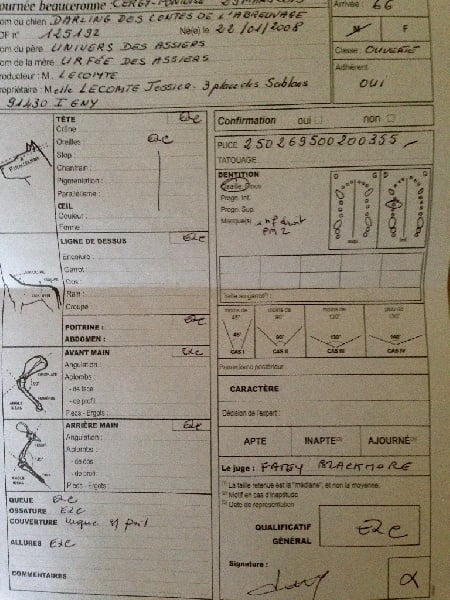 Journée beauceronne : CERGY-PONTOISE 29 MARS 2015
Arrivée : 66
Nom du chien : DARLING DES CONTES DE L'ABREUVAGE
LOF n° : 125192 Né(e) le : 22/01/2008
M F
Nom du père : UNIVERS DES ASSIERS
Classe : OUVERTE
Nom de la mère : URFÉE DES ASSIERS
Producteur : M. LECOMTE
Adhérent
OUI
Propriétaire : Melle LECOMTE Jessica - 3 place des Sablons
91430 IGNY
TÊTE Exc
Crâne
Oreilles : Exc
Stop :
Chanfrein :
Pigmentation :
Parallélisme :
ŒIL
Couleur :
Forme :
Confirmation oui non
PUCE 250269500200355
TATOUAGE :
DENTITION
Cisaille
Progn. Inf.
Progn. Sup.
Manque(s)
PM2
LIGNE DE DESSUS Exc
Encolure :
Garrot :
Dos :
Rein :
Croupe :
Taille au garrot
POITRINE : Exc
ABDOMEN :
moins de 45° moins de 90° moins de 120° plus de 130°
45° 90° 120° 140°
CAS I CAS II CAS III CAS IV
AVANT MAIN Exc
Angulation :
Aplombs :
- de face
- de profil
Pieds - Ergots :
CARACTÈRE
Décision de l'expert :
APTE INAPTE(2) AJOURNÉ(3)
ARRIÈRE MAIN Exc
Angulation :
Aplombs :
- de dos
- de profil
Pieds - Ergots :
Le juge : PATSY BLACKMORE
(1) La taille retenue est la "médiane", et non la moyenne.
(2) Motif en cas d'inaptitude
(3) Date de représentation
QUEUE Exc
OSSATURE Exc
COUVERTURE
ALLURES Exc
COMMENTAIRES
QUALIFICATIF
GÉNÉRAL
Exc
Signature :